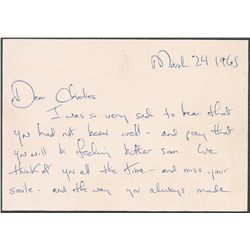 March 24 1965
Dear Charles
I was so very sad to hear that
you had not been well - and pray that
you will be feeling better soon. We
think of you all the time - and miss your
smile - and the way you always made